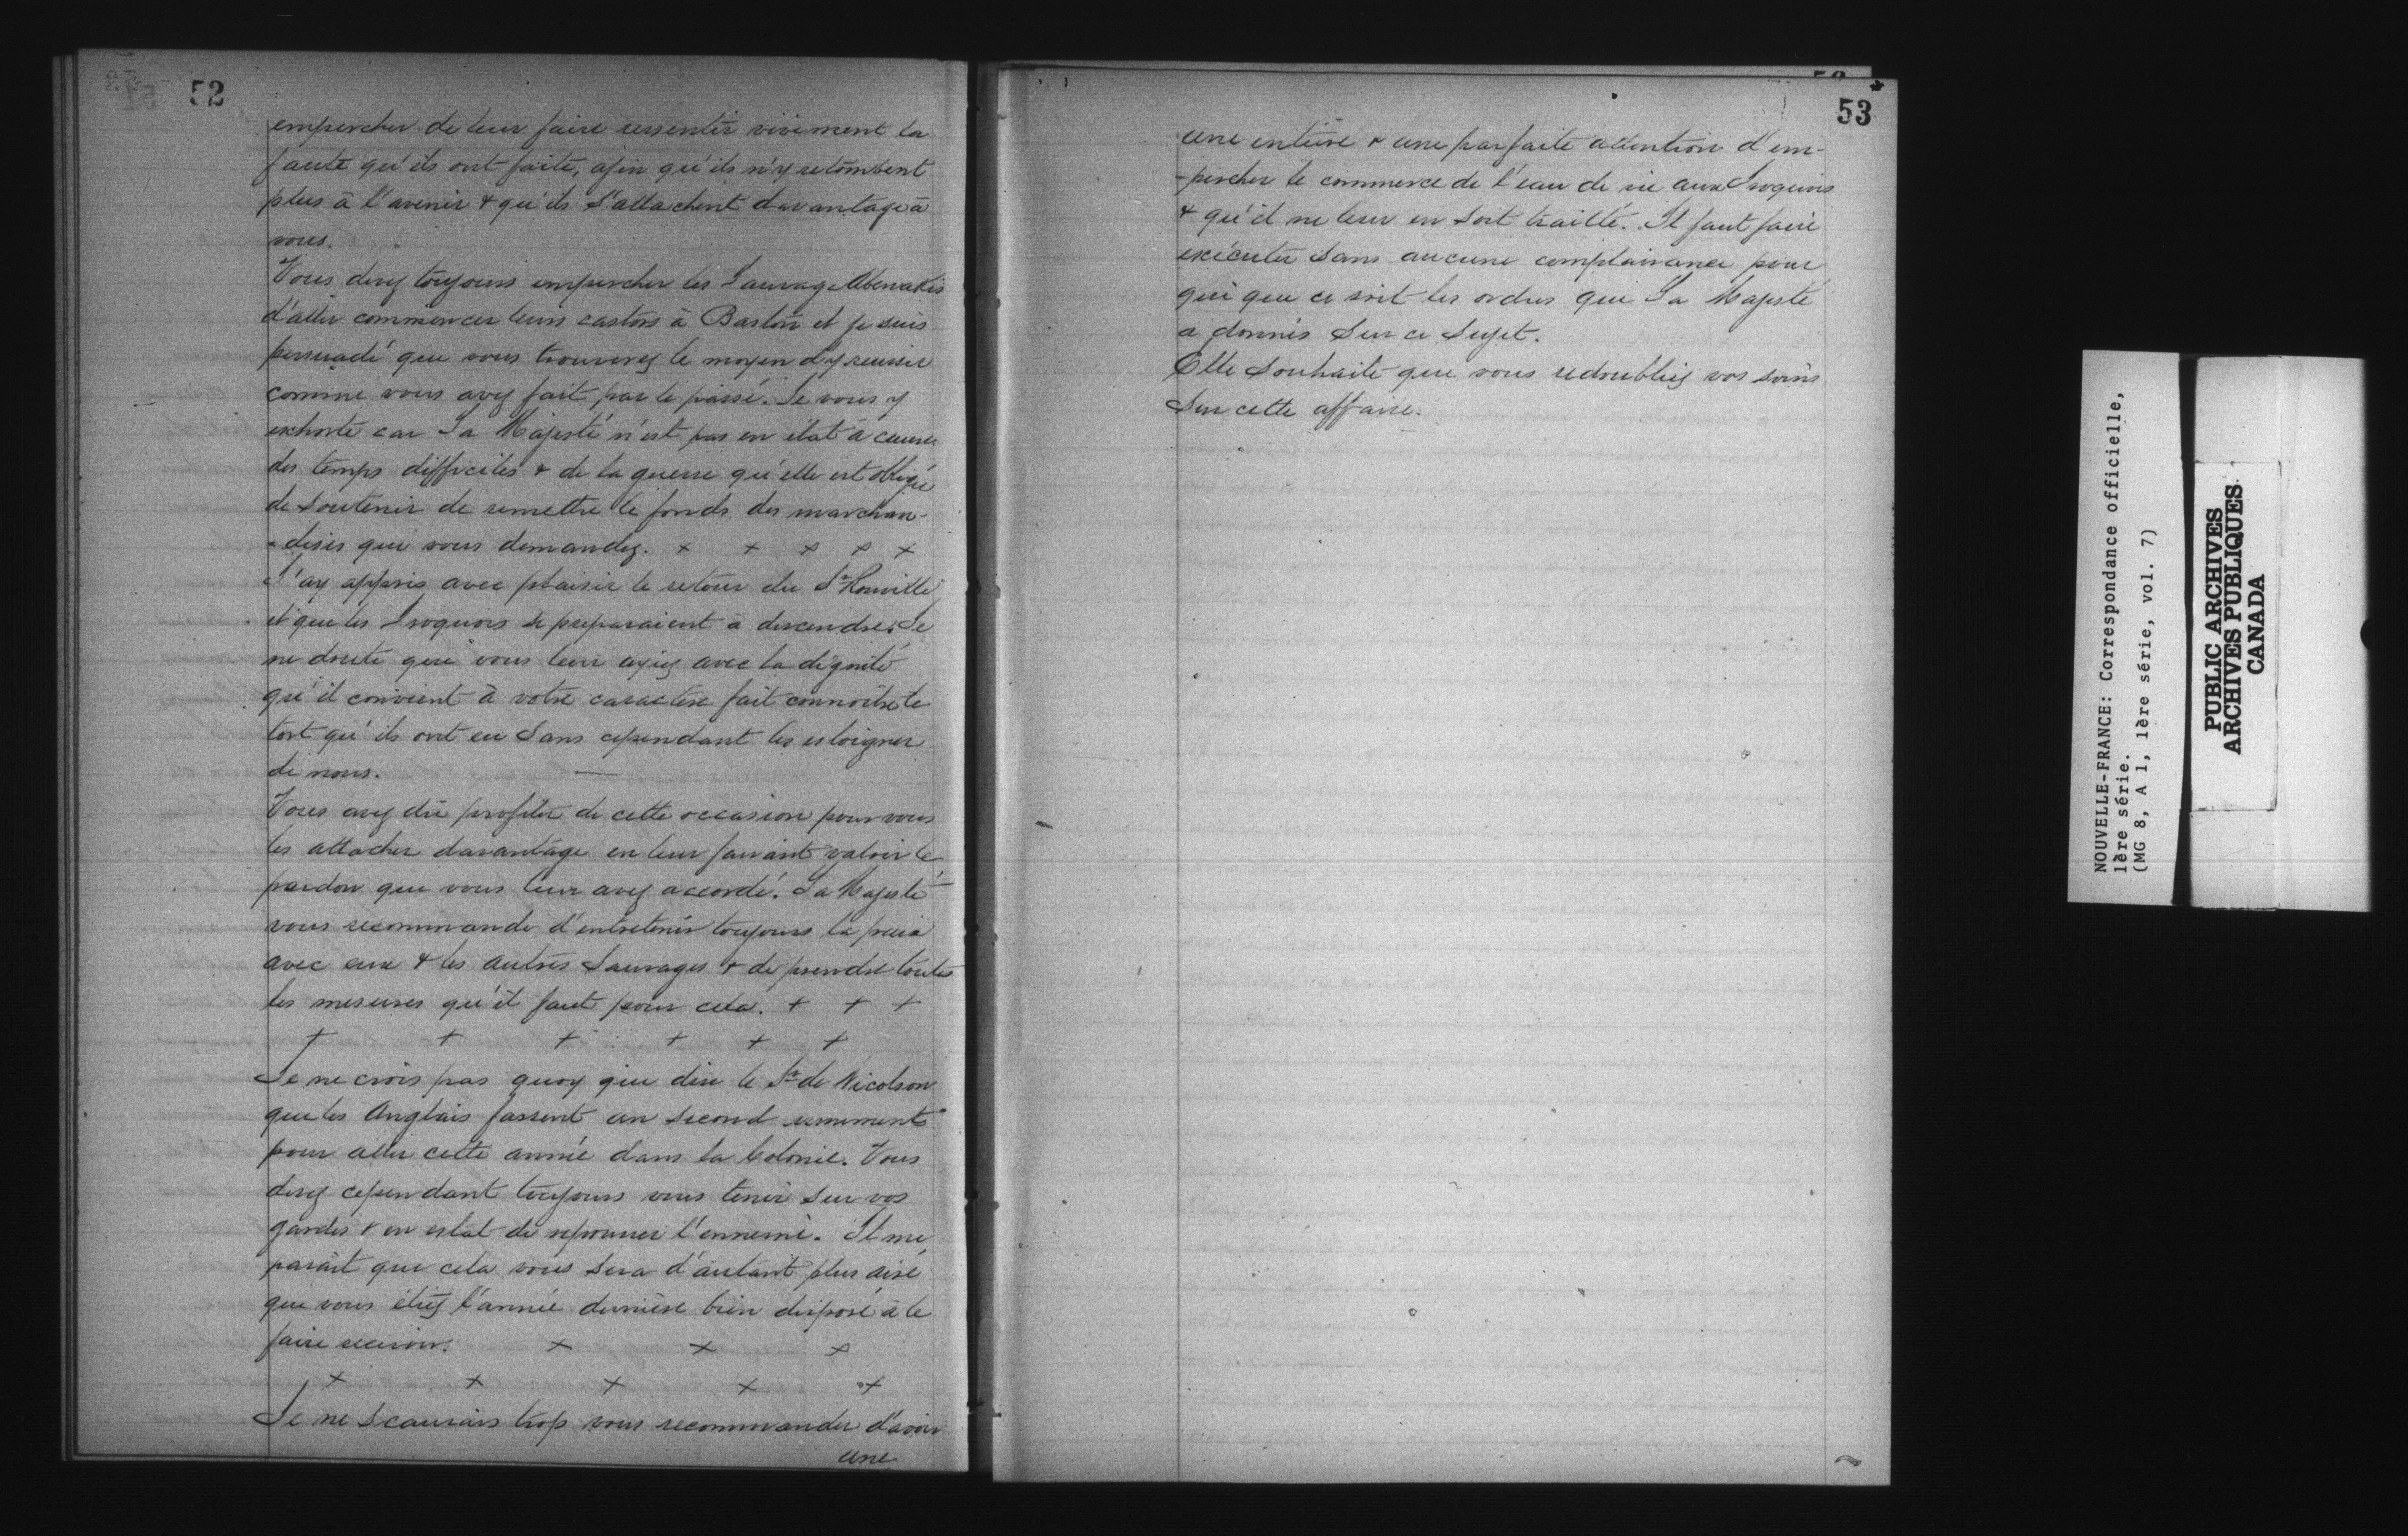 52
empescher de leur faire ressentir vivement la
faute qu'ils ont faite, afin qu'ils n'y retombent
plus à l'avenir & qu'ils s'attachent davantage à
vous.
Vous devez toujours empescher les Sauvag Abenakis
d'aller commencer leurs castors à Baston et je suis
persuadé que vous trouverez le moyen d'y reussir
comme vous avez fait par le passé. Je vous y
exhorte car Sa Majesté n'est pas en état à cause
des temps difficiles & de la guerre qu'elle est obligée
de soutenir de remettre le fonds des marchan-
-dises que vous demandez. x x x x x
J'ay appris avec plaisir le retour du Sr Rouville
et que les Iroquois se preparaient à descendre. Je
ne doute que vous leur ayiez avec la dignité
qu'il convient à votre caractère fait connoitre le
tort qu'ils ont eu sans cependant les esloigner
de nous.
Vous avez dû profiter de cette occasion pour vous
les attacher davantage en leur faisant valoir le
pardon que vous leur avez accordé. Sa Majesté
vous recommande d'entretenir toujours la paix
avec eux & les autres Sauvages & de prendre toutes
les mesures qu'il faut pour cela. + + +
+ + + + + +
Je ne crois pas quoy que dise le Sr de Nicolson
que les Anglais fassent un second armement
pour aller cette année dans la Colonie. Vous
devez cependant toujours vous tenir sur vos
gardes & en estat de repousser l'ennemi. Il me
parait que cela vous sera d'autant plus aisé
que vous étiez l'année dernière bien disposé à le
faire recevoir. x x x
x x x x x
Je ne scaurais trop vous recommander d'avoir
une
53
une entière & une parfaite attention d'em-
-pescher le commerce de l'eau de vie aux Iroquois
& qu'il ne leur en soit traitté. Il faut faire
exécuter sans aucune complaisance pour
qui que ce soit les ordres que Sa Majesté
a donnés sur ce sujet.
Elle souhaite que vous redoubliez vos soins
sur cette affaire.
NOUVELLE-FRANCE: Correspondance officielle,
1ère série.
(MG 8, A 1, 1ère série, vol. 7)
PUBLIC ARCHIVES
ARCHIVES PUBLIQUES
CANADA